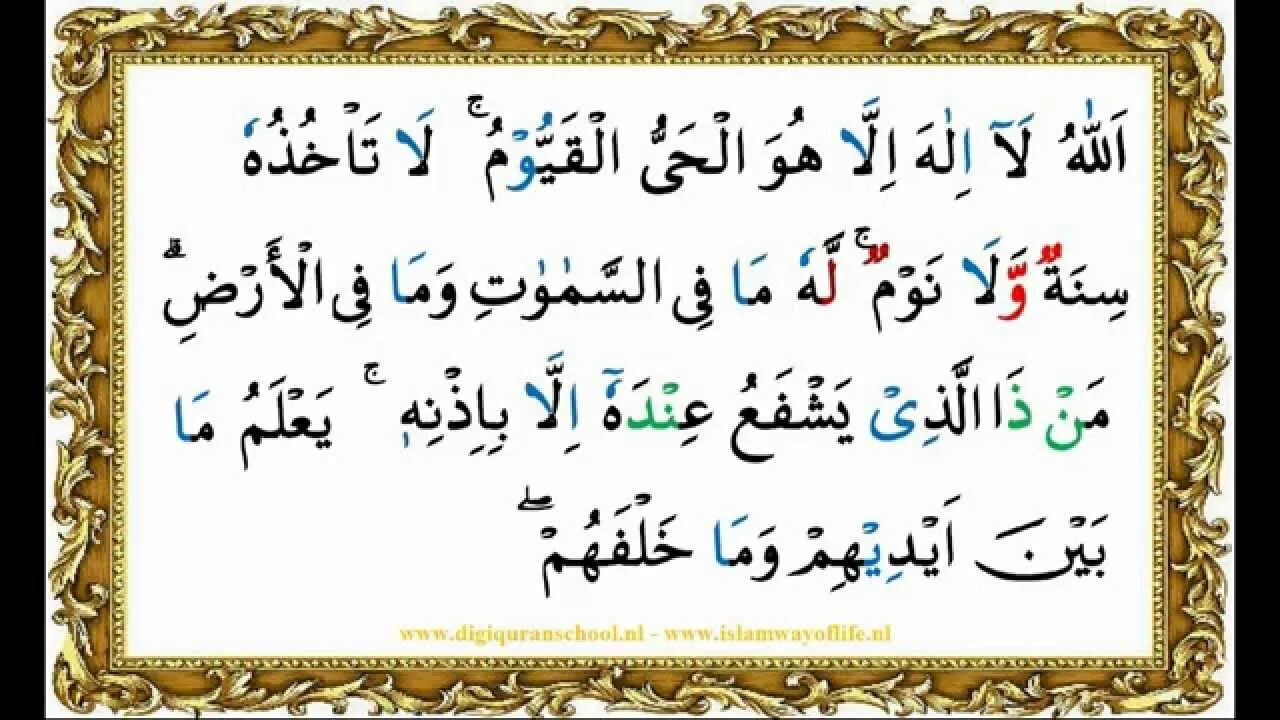 اَللّٰهُ لَآ اِلٰهَ اِلَّا هُوَ الْحَىُّ الْقَيُّوْمُ ۚ لَا تَاْخُذُهٗ
سِنَةٌ وَّلَا نَوْمٌ ۚ لَّهٗ مَا فِى السَّمٰوٰتِ وَمَا فِى الْاَرْضِ ؕ
مَنْ ذَا الَّذِىْ يَشْفَعُ عِنْدَهٗٓ اِلَّا بِاِذْنِهٖ ۚ يَعْلَمُ مَا
بَيْنَ اَيْدِيْهِمْ وَمَا خَلْفَهُمْ ۖ
www.digiquranschool.nl - www.islamwayoflife.nl